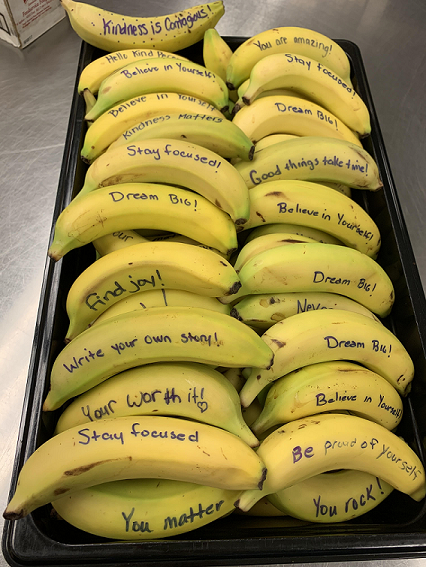 Kindness is Contagious!
Hello Kind
Believe in Yourself!
Believe in Yourself
Kindness Matters
Stay focused!
Dream BIG!
our
find joy!
!
Write your own story!
Your worth it! ♡
Stay focused
You matter
You are amazing!
Stay focused!
Dream BIG!
Good things take time!
Believe in Yourself!
Dream BIG!
Neve
Dream BIG!
Believe in Yourself!
Be proud of yourself
You rock!